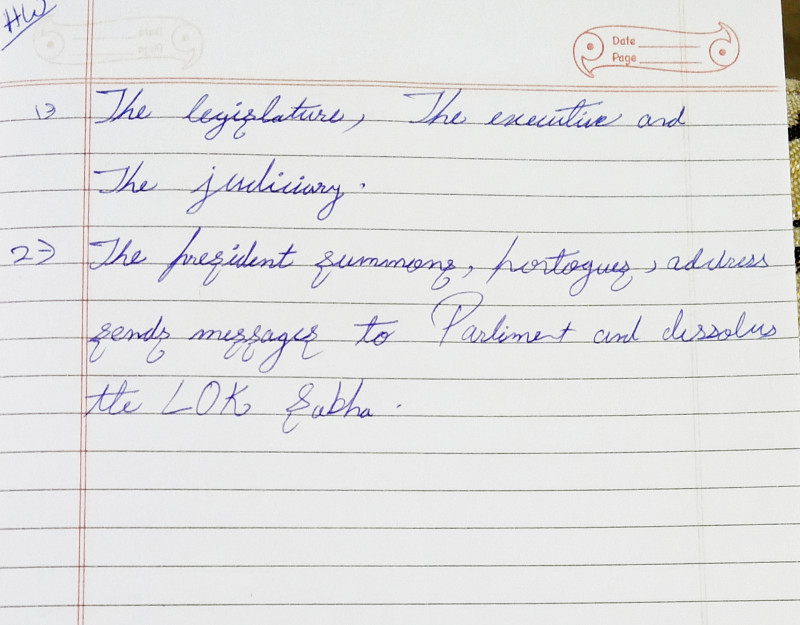 HW
Date
Page
1) The legislature, The executive and
The judiciary.
2) The president summons, portogues, address
sends messages to Parliment and dissolus
the LOK Sabha.